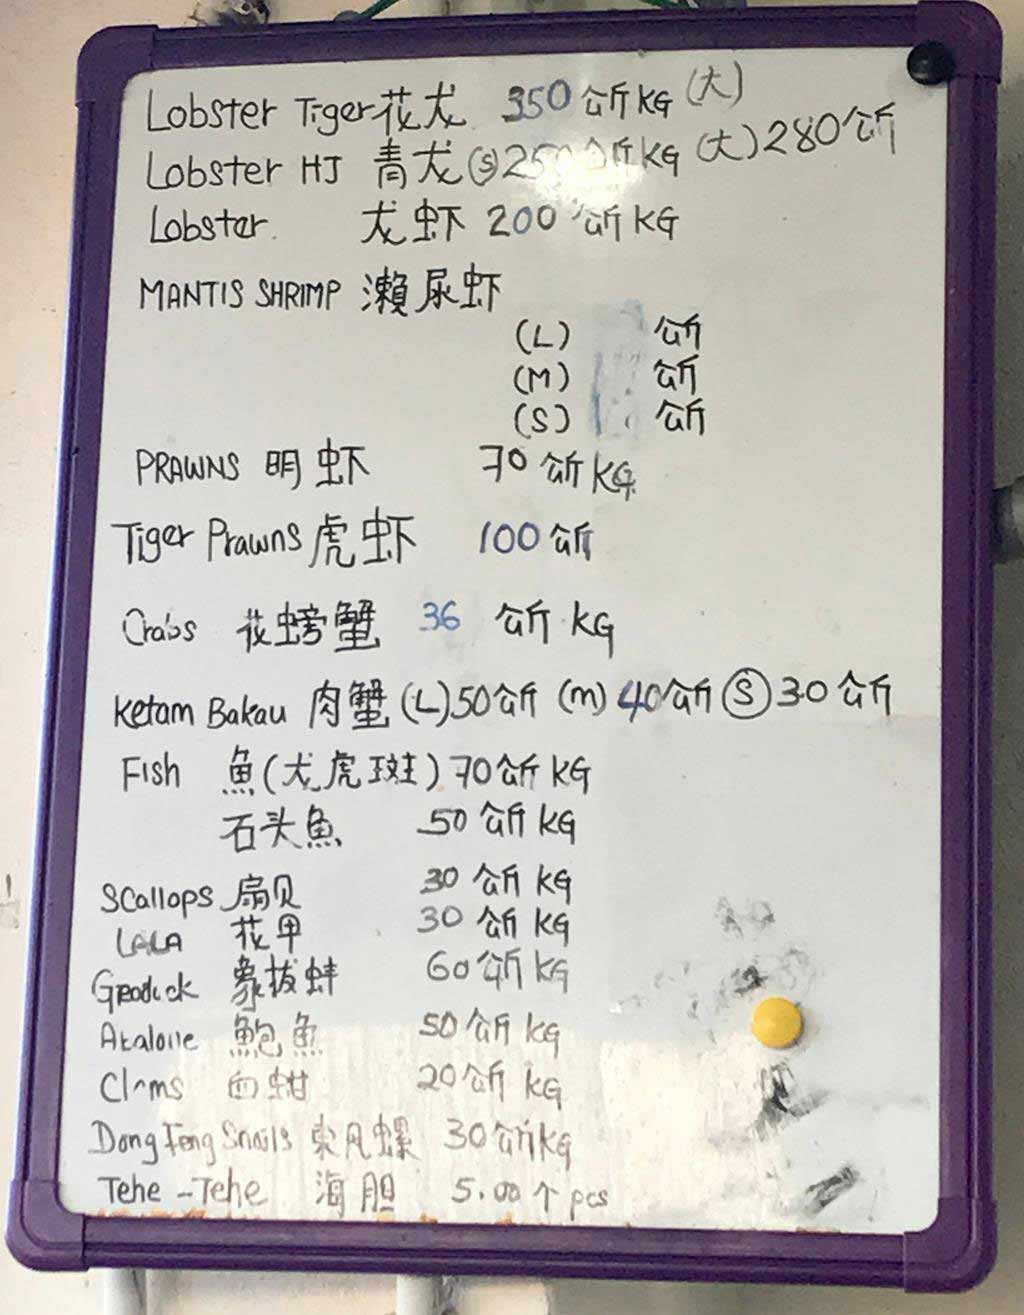 Lobster Tiger 花龙 350 公斤 KG (大)
Lobster HJ 青龙 (S) 250 公斤 KG (大) 280 公斤
Lobster 龙虾 200 公斤 KG
MANTIS SHRIMP 瀨尿虾
(L) 公斤
(M) 公斤
(S) 公斤
PRAWNS 明虾 70 公斤 KG
Tiger Prawns 虎虾 100 公斤
Crabs 花螃蟹 36 公斤 KG
Ketam Bakau 肉蟹 (L) 50 公斤 (M) 40 公斤 (S) 30 公斤
Fish 魚 (龙虎斑) 70 公斤 KG
石头魚 50 公斤 KG
Scallops 扇贝 30 公斤 KG
LALA 花甲 30 公斤 KG
Geoduck 象拔蚌 60 公斤 KG
Abalone 鮑魚 50 公斤 KG
Clams 血蚶 20 公斤 KG
Dong Feng Snails 东风螺 30 公斤 KG
Tehe-Tehe 海胆 5.00 个 pcs